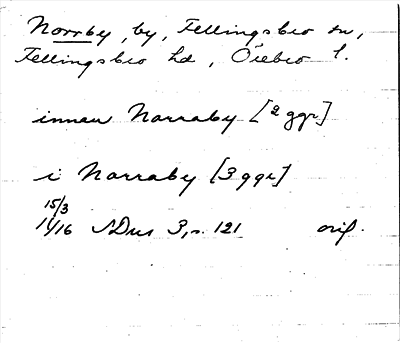 Norrby, by, Fellingsbro sn,
Fellingsbro hd, Örebro l.
innan Norraby [2 ggr]
i Norraby [3 ggr]
15/3
1416 SDns 3, s. 121 orig.